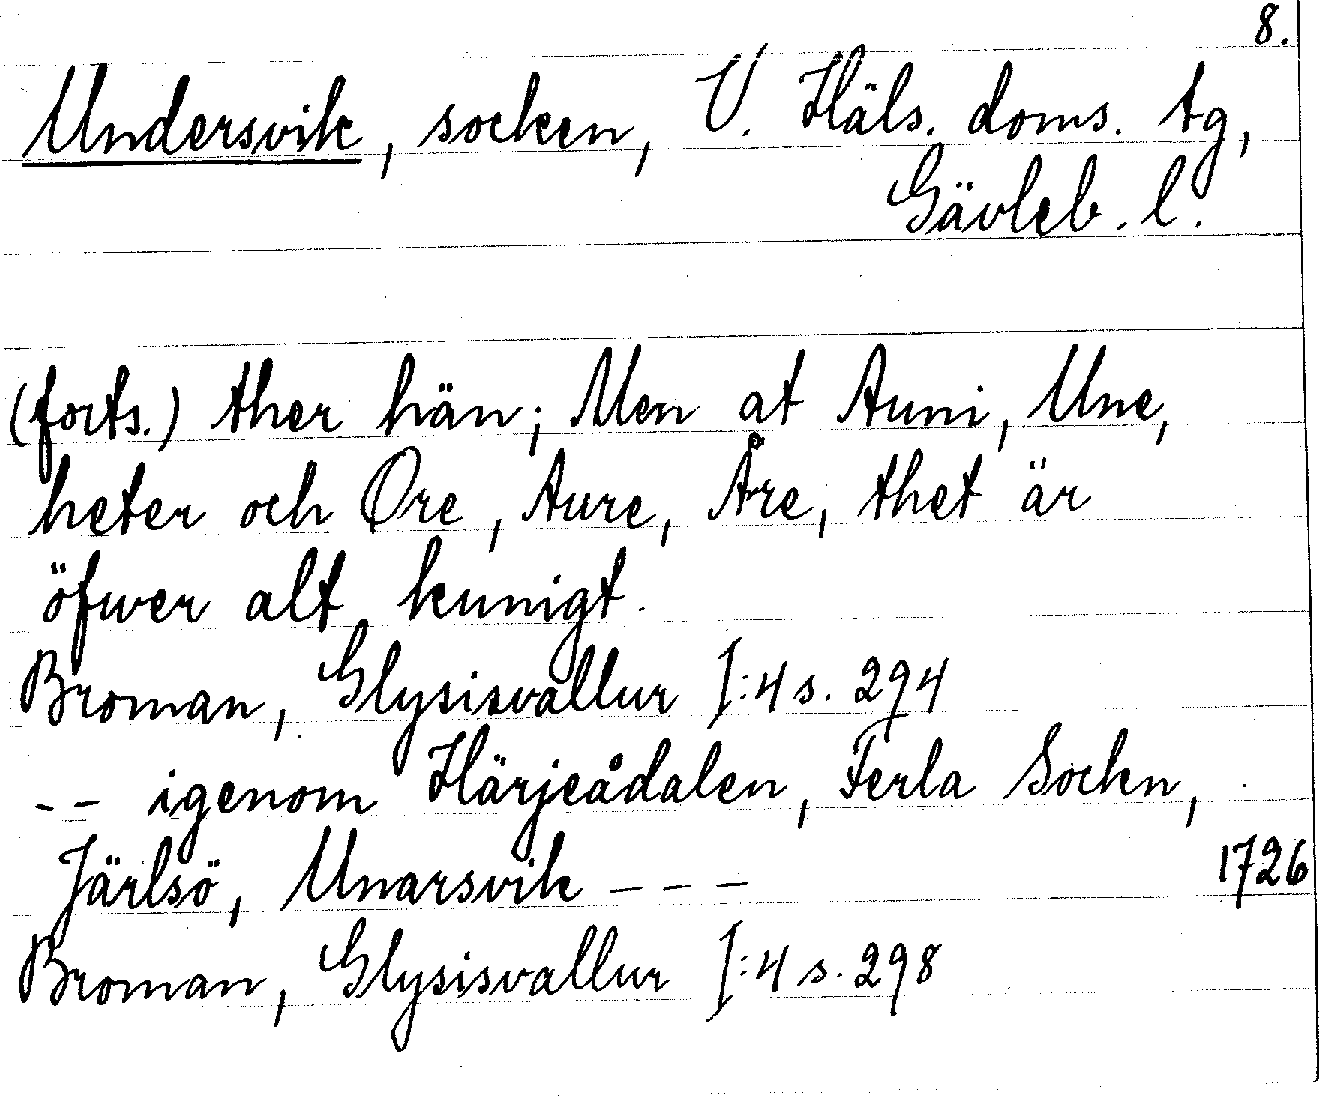 8.
Undersvik, socken, V. Häls. doms. tg,
Gävleb. l.
(forts.) ther hän; Men at Auni, Une,
heter och Öre, Aure, Åre, thet är
öfwer alt kunigt.
Broman, Glysisvallur I:4 s. 294
-- igenom Härjeådalen, Ferla Sockn,
Järlsö, Unarsvik --- 1726
Broman, Glysisvallur I:4 s. 298